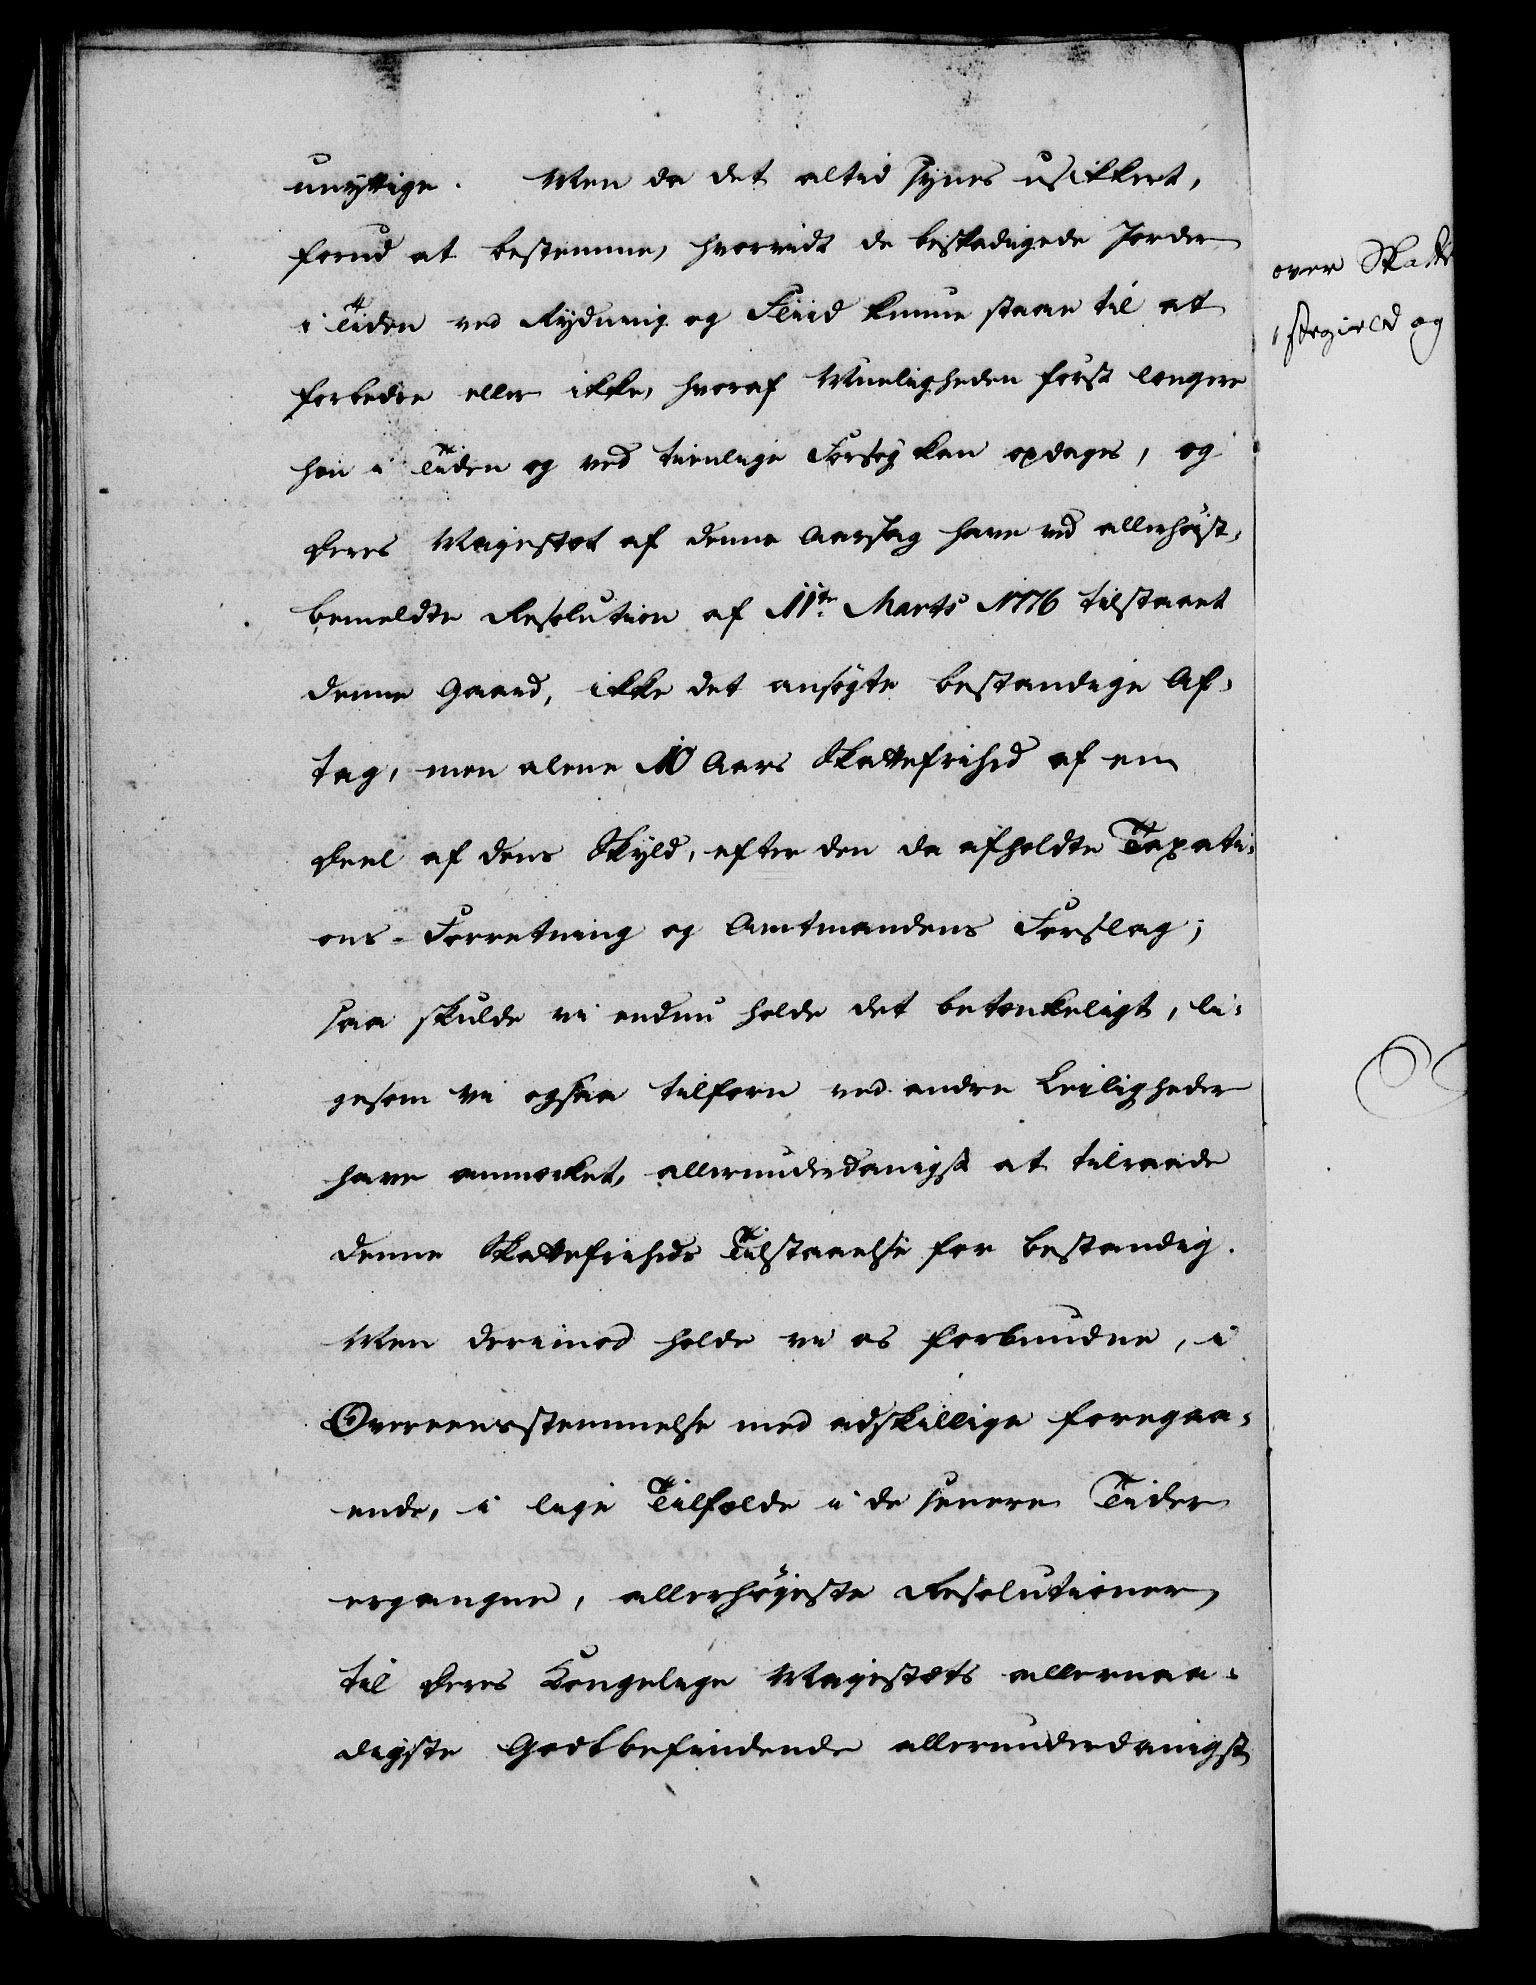 unyttige. Men da det altid synes usikkert,
forud at bestemme, hvorvidt de beskadigede Jorder
i Tiden ved Rydning og Fliid kunne staae til at
forbedre eller ikke, hvoraf Mueligheden først længere
hen i Tiden og ved tienlige Forsøg kan opdages, og
Deres Majestæt af denne Aarsag have ved allerhøist-
bemeldte Resolution af 11te Marts 1776 tilstaaet
denne Gaard, ikke det ansøgte bestandige Af-
tag, men alene 10 Aars Skattefrihed af en
Deel af dens Skyld, efter den da afholdte Taxati-
ons-Forretning og Amtmandens Forslag;
saa skulde vi endnu holde det betænkeligt, li-
gesom vi ogsaa tilforn ved andre Leiligheder
have anmærket, allerunderdanigst at tilraade
denne Skattefriheds Tilstaaelse for bestandig.
Men derimod holde vi os forbundne, i
Overeensstemmelse med adskillige foregaa-
ende, i lige Tilfælde i de senere Tider
ergangne, allerhøyeste Resolutioner,
til Deres Kongelige Majestæts allernaa-
digste Godtbefindende allerunderdanigst
over Skatte
og